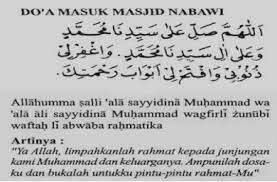 DO'A MASUK MASJID NABAWI
اَللّٰهُمَّ صَلِّ عَلٰى سَيِّدِنَا مُحَمَّدٍ
وَعَلٰى اٰلِ سَيِّدِنَا مُحَمَّدٍ. وَاغْفِرْلِيْ
ذُنُوْبِيْ وَافْتَحْ لِيْ اَبْوَابَ رَحْمَتِكَ.
Allāhumma ṣalli 'alā sayyidinā Muḥammad wa
'alā āli sayyidinā Muḥammad wagfirlī żunūbī
waftaḥ lī abwāba raḥmatika
Artinya :
"Ya Allah, limpahkanlah rahmat kepada junjungan
kami Muhammad dan keluarganya. Ampunilah dosa-
ku dan bukalah untukku pintu-pintu rahmat-Mu"